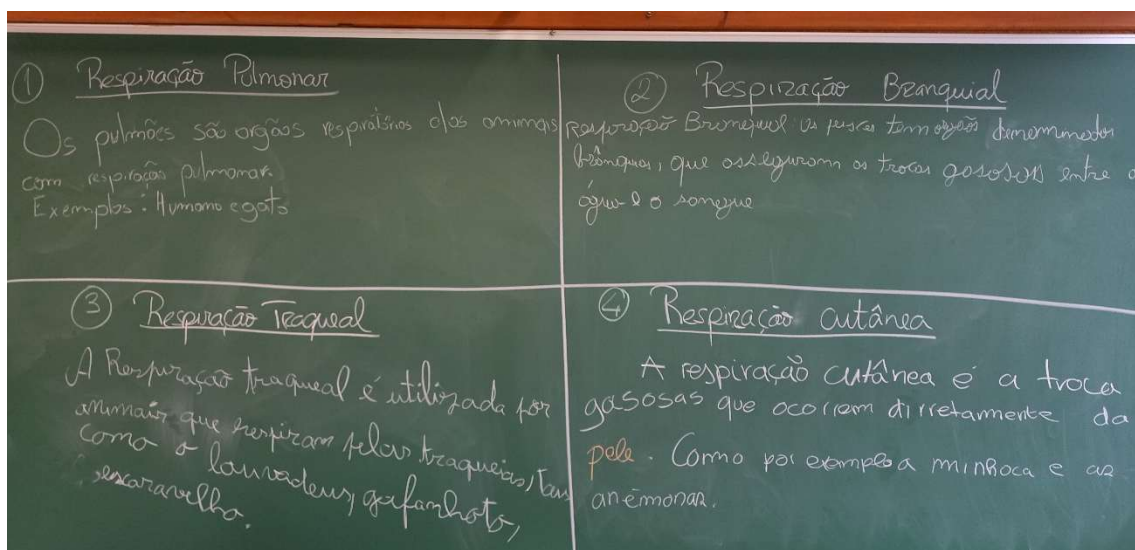 ① Respiração Pulmonar
Os pulmões são orgãos respiratórios dos animais
com respiração pulmonar.
Exemplos: Humano e gato
② Respiração Branquial
respiração Branquial os peixes tem orgãos denominados
brânquias, que asseguram as trocas gasosas entre a
água e o sangue
③ Respiração Traqueal
A Respiração traqueal é utilizada por
animais que respiram pelas traqueias, tais
como o louvadeus, gafanhoto,
escaravelho.
④ Respiração cutânea
A respiração cutânea é a troca
gasosas que ocorrem dirretamente da
pele. Como por exemplo a minhoca e as
anémonas.